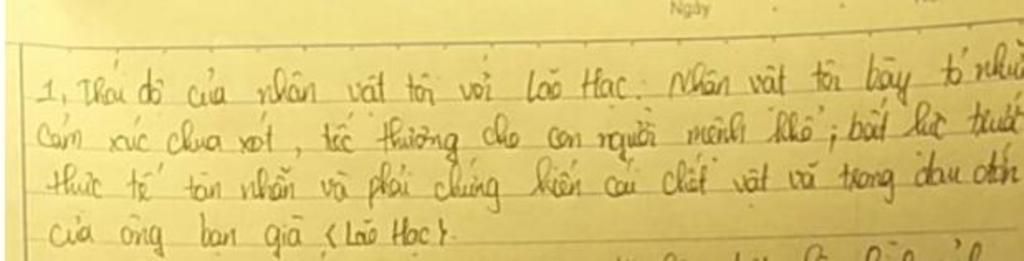 Ngày
1, Thái độ của nhân vật tôi với Lão Hạc. Nhân vật tôi bày tỏ nhữ
cảm xúc chua xót, tiếc thương cho con người mệnh khổ; bất lực trước
thực tế tàn nhẫn và phải chứng kiến cái chết vật vã trong đau đớn
của ông bạn già (Lão Hạc).